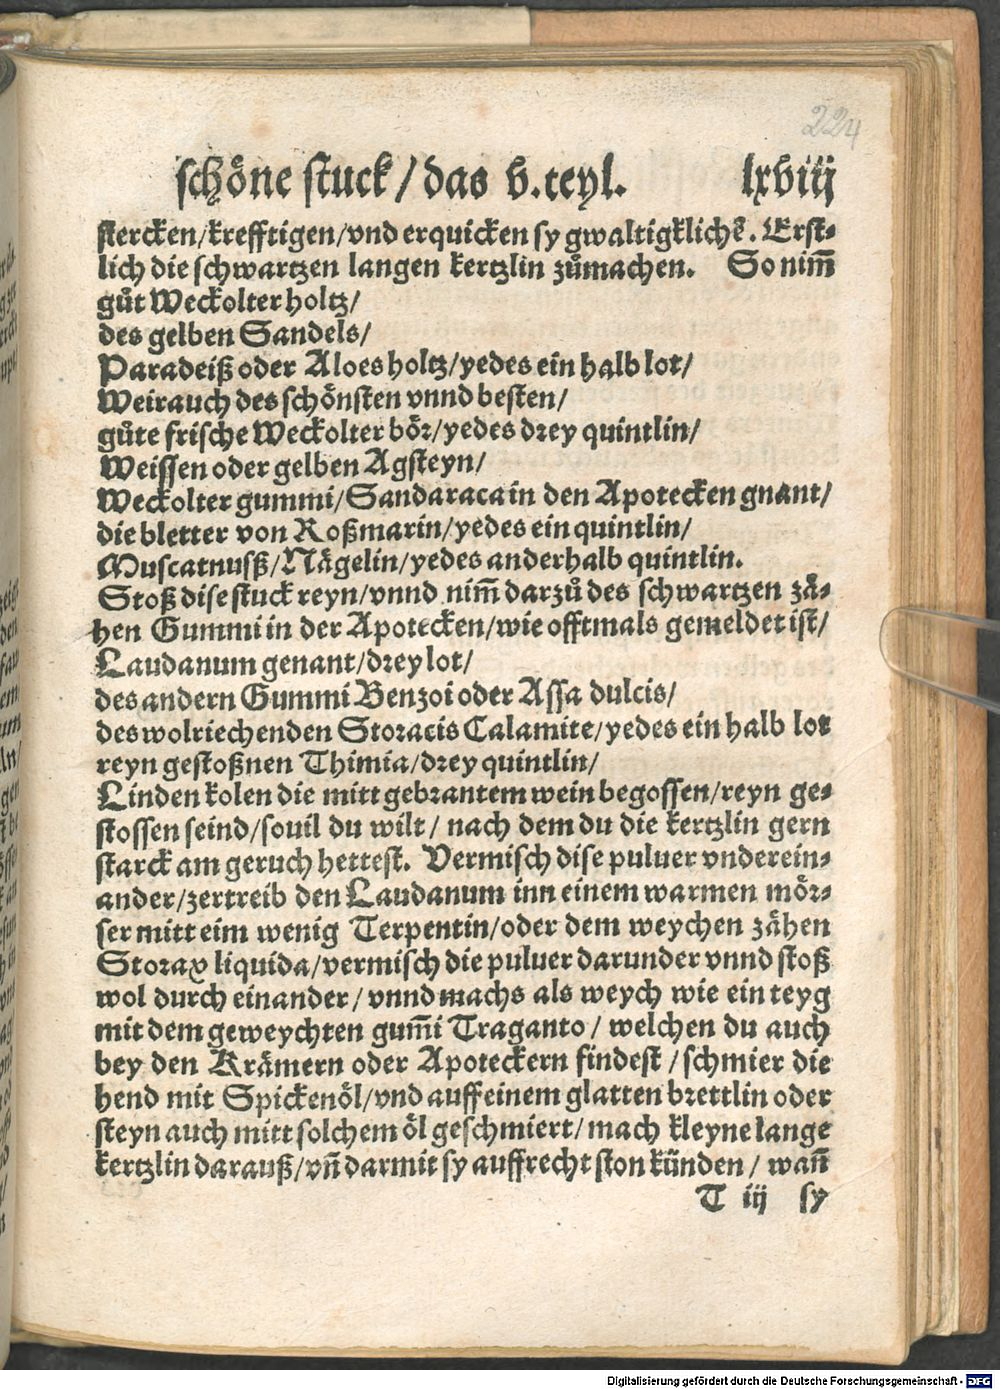 224
schöne stuck / das v. teyl. lxviij
stercken/krefftigen/vnd erquicken sy gwaltigklichē. Erst-
lich die schwartzen langen kertzlin zůmachen. So nim̄
gůt Weckolter holtz/
des gelben Sandels/
Paradeiß oder Aloes holtz/yedes ein halb lot/
Weirauch des schönsten vnnd besten/
gůte frische Weckolter bör/yedes drey quintlin/
Weissen oder gelben Agsteyn/
Weckolter gummi/Sandaraca in den Apotecken gnant/
die bletter von Roßmarin/yedes ein quintlin/
Muscatnusß/Nägelin/yedes anderhalb quintlin.
Stoß dise stuck reyn/vnnd nim̄ darzů des schwartzen zä-
hen Gummi in der Apotecken/wie offtmals gemeldet ist/
Laudanum genant/drey lot/
des andern Gummi Benzoi oder Assa dulcis/
des wolriechenden Storacis Calamite/yedes ein halb lot
reyn gestoßnen Thimia/drey quintlin/
Linden kolen die mitt gebrantem wein begossen/reyn ge-
stossen seind/souil du wilt/ nach dem du die kertzlin gern
starck am geruch hettest. Vermisch dise puluer vnderein-
ander/zertreib den Laudanum inn einem warmen mör-
ser mitt eim wenig Terpentin/oder dem weychen zähen
Storax liquida/vermisch die puluer darunder vnnd stoß
wol durch einander/ vnnd machs als weych wie ein teyg
mit dem geweychten gum̄i Traganto / welchen du auch
bey den Krämern oder Apoteckern findest /schmier die
hend mit Spickenöl/vnd auff einem glatten brettlin oder
steyn auch mitt solchem öl geschmiert/mach kleyne lange
kertzlin darauß/vn̄ darmit sy auffrecht ston künden / wan̄
T iij sy
Digitalisierung gefördert durch die Deutsche Forschungsgemeinschaft - DFG